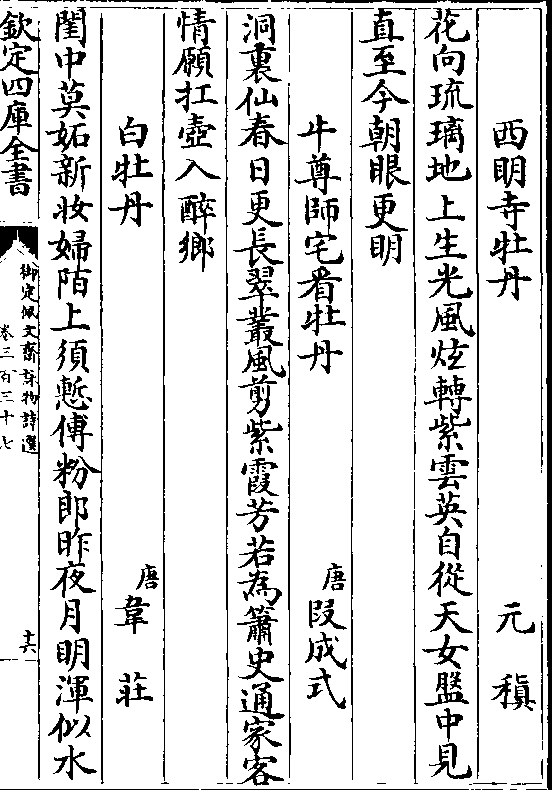 西明寺牡丹　元稹
花向琉璃地上生光風炫轉紫雲英自從天女盤中見
直至今朝眼更明
牛尊師宅看牡丹　唐段成式
洞裏仙春日更長翠叢風剪紫霞芳若為簫史通家客
情願扛壺入醉鄉
白牡丹　唐韋莊
閨中莫妬新妝婦陌上須慙傅粉郎昨夜月明渾似水
欽定四庫全書
御定佩文齋詠物詩選
卷三百三十七
十六